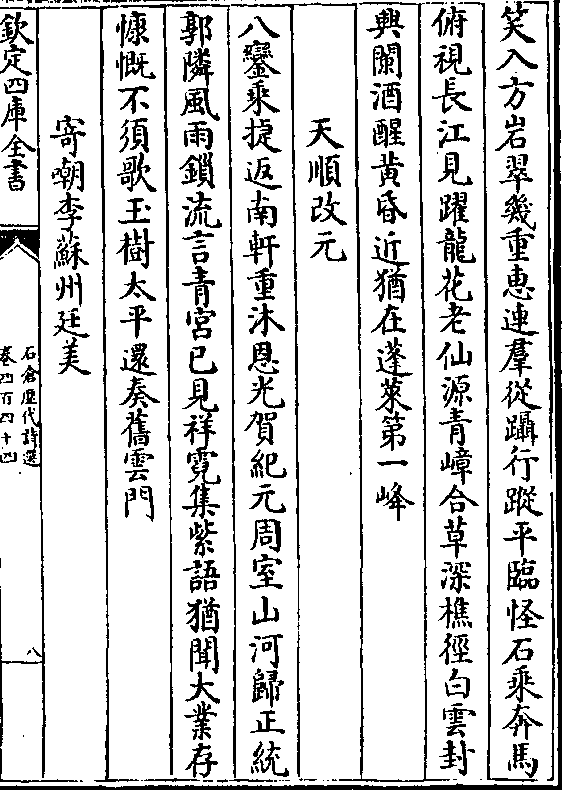 笑入方岩翠幾重惠連羣從躡行蹤平臨怪石乘奔馬
俯視長江見躍龍花老仙源青嶂合草深樵徑白雲封
興闌酒醒黃昏近猶在蓬萊第一峰
天順改元
八鑾乘捷返南軒重沐恩光賀紀元周室山河歸正統
郭隣風雨鎖流言青宮已見祥霓集紫語猶聞大業存
慷慨不須歌玉樹太平還奏舊雲門
寄嘲李蘇州廷美
欽定四庫全書
石倉歷代詩選
卷四百四十四
八